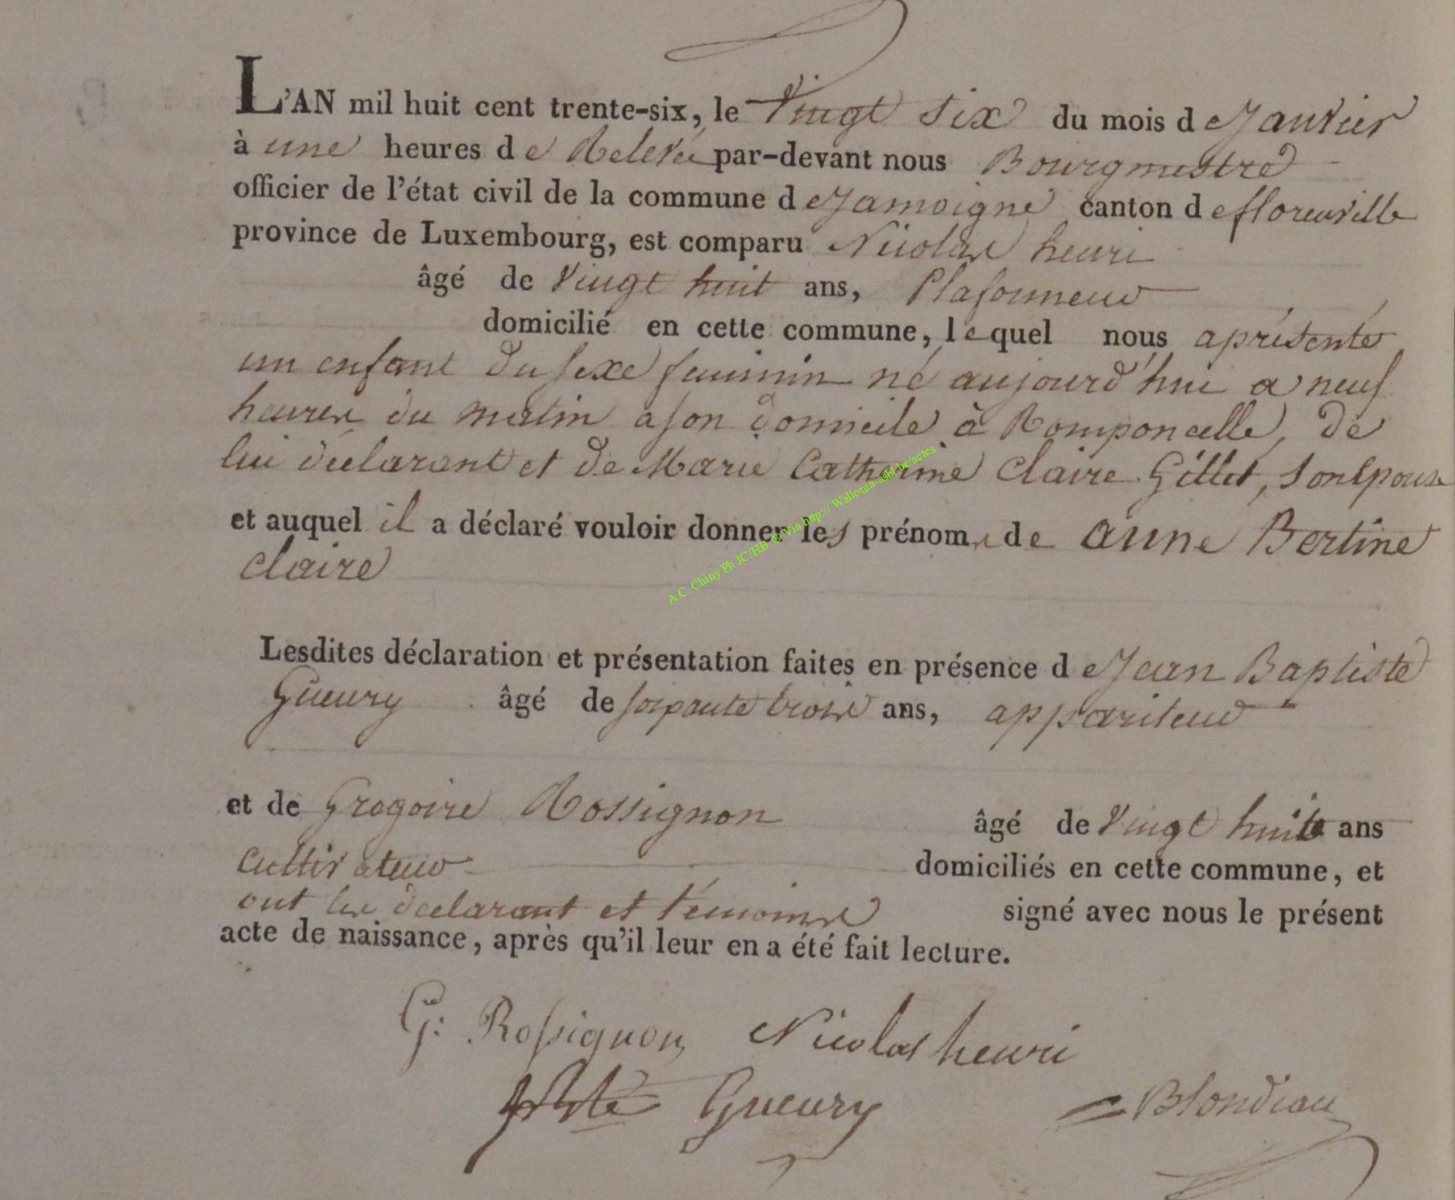 L'AN mil huit cent trente-six, le Vingt six du mois de Janvier
à une heures de Relevée par-devant nous Bourgmestre
officier de l'état civil de la commune de Jamoigne canton de florenville
province de Luxembourg, est comparu Nicolas henri
âgé de Vingt huit ans, Plafonneur
domicilié en cette commune, lequel nous a présenté
un enfant du sexe feminin né aujourd'hui a neuf
heures du matin a son domicile à Romponcelle, de
lui déclarant et de Marie Catherine Claire Gillet, son Epouse
et auquel il a déclaré vouloir donner les prénoms de anne Bertine
claire
A.C. Chiny Ph JC/HB Via http:// Wallonia-asbl.be/actes
Lesdites déclaration et présentation faites en présence de Jean Baptiste
Gueury âgé de soixante trois ans, appariteur
et de Gregoire Rossignon âgé de Vingt huit ans
cultivateur domiciliés en cette commune, et
ont les declarant et témoins signé avec nous le présent
acte de naissance, après qu'il leur en a été fait lecture.
G: Rossignon Nicolas henri
JBte Gueury Blondiau